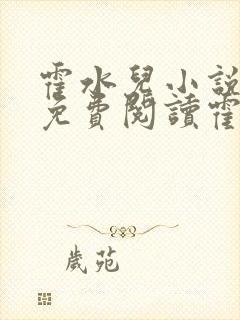 霍水兒小說
免費閱讀霍
歲苑